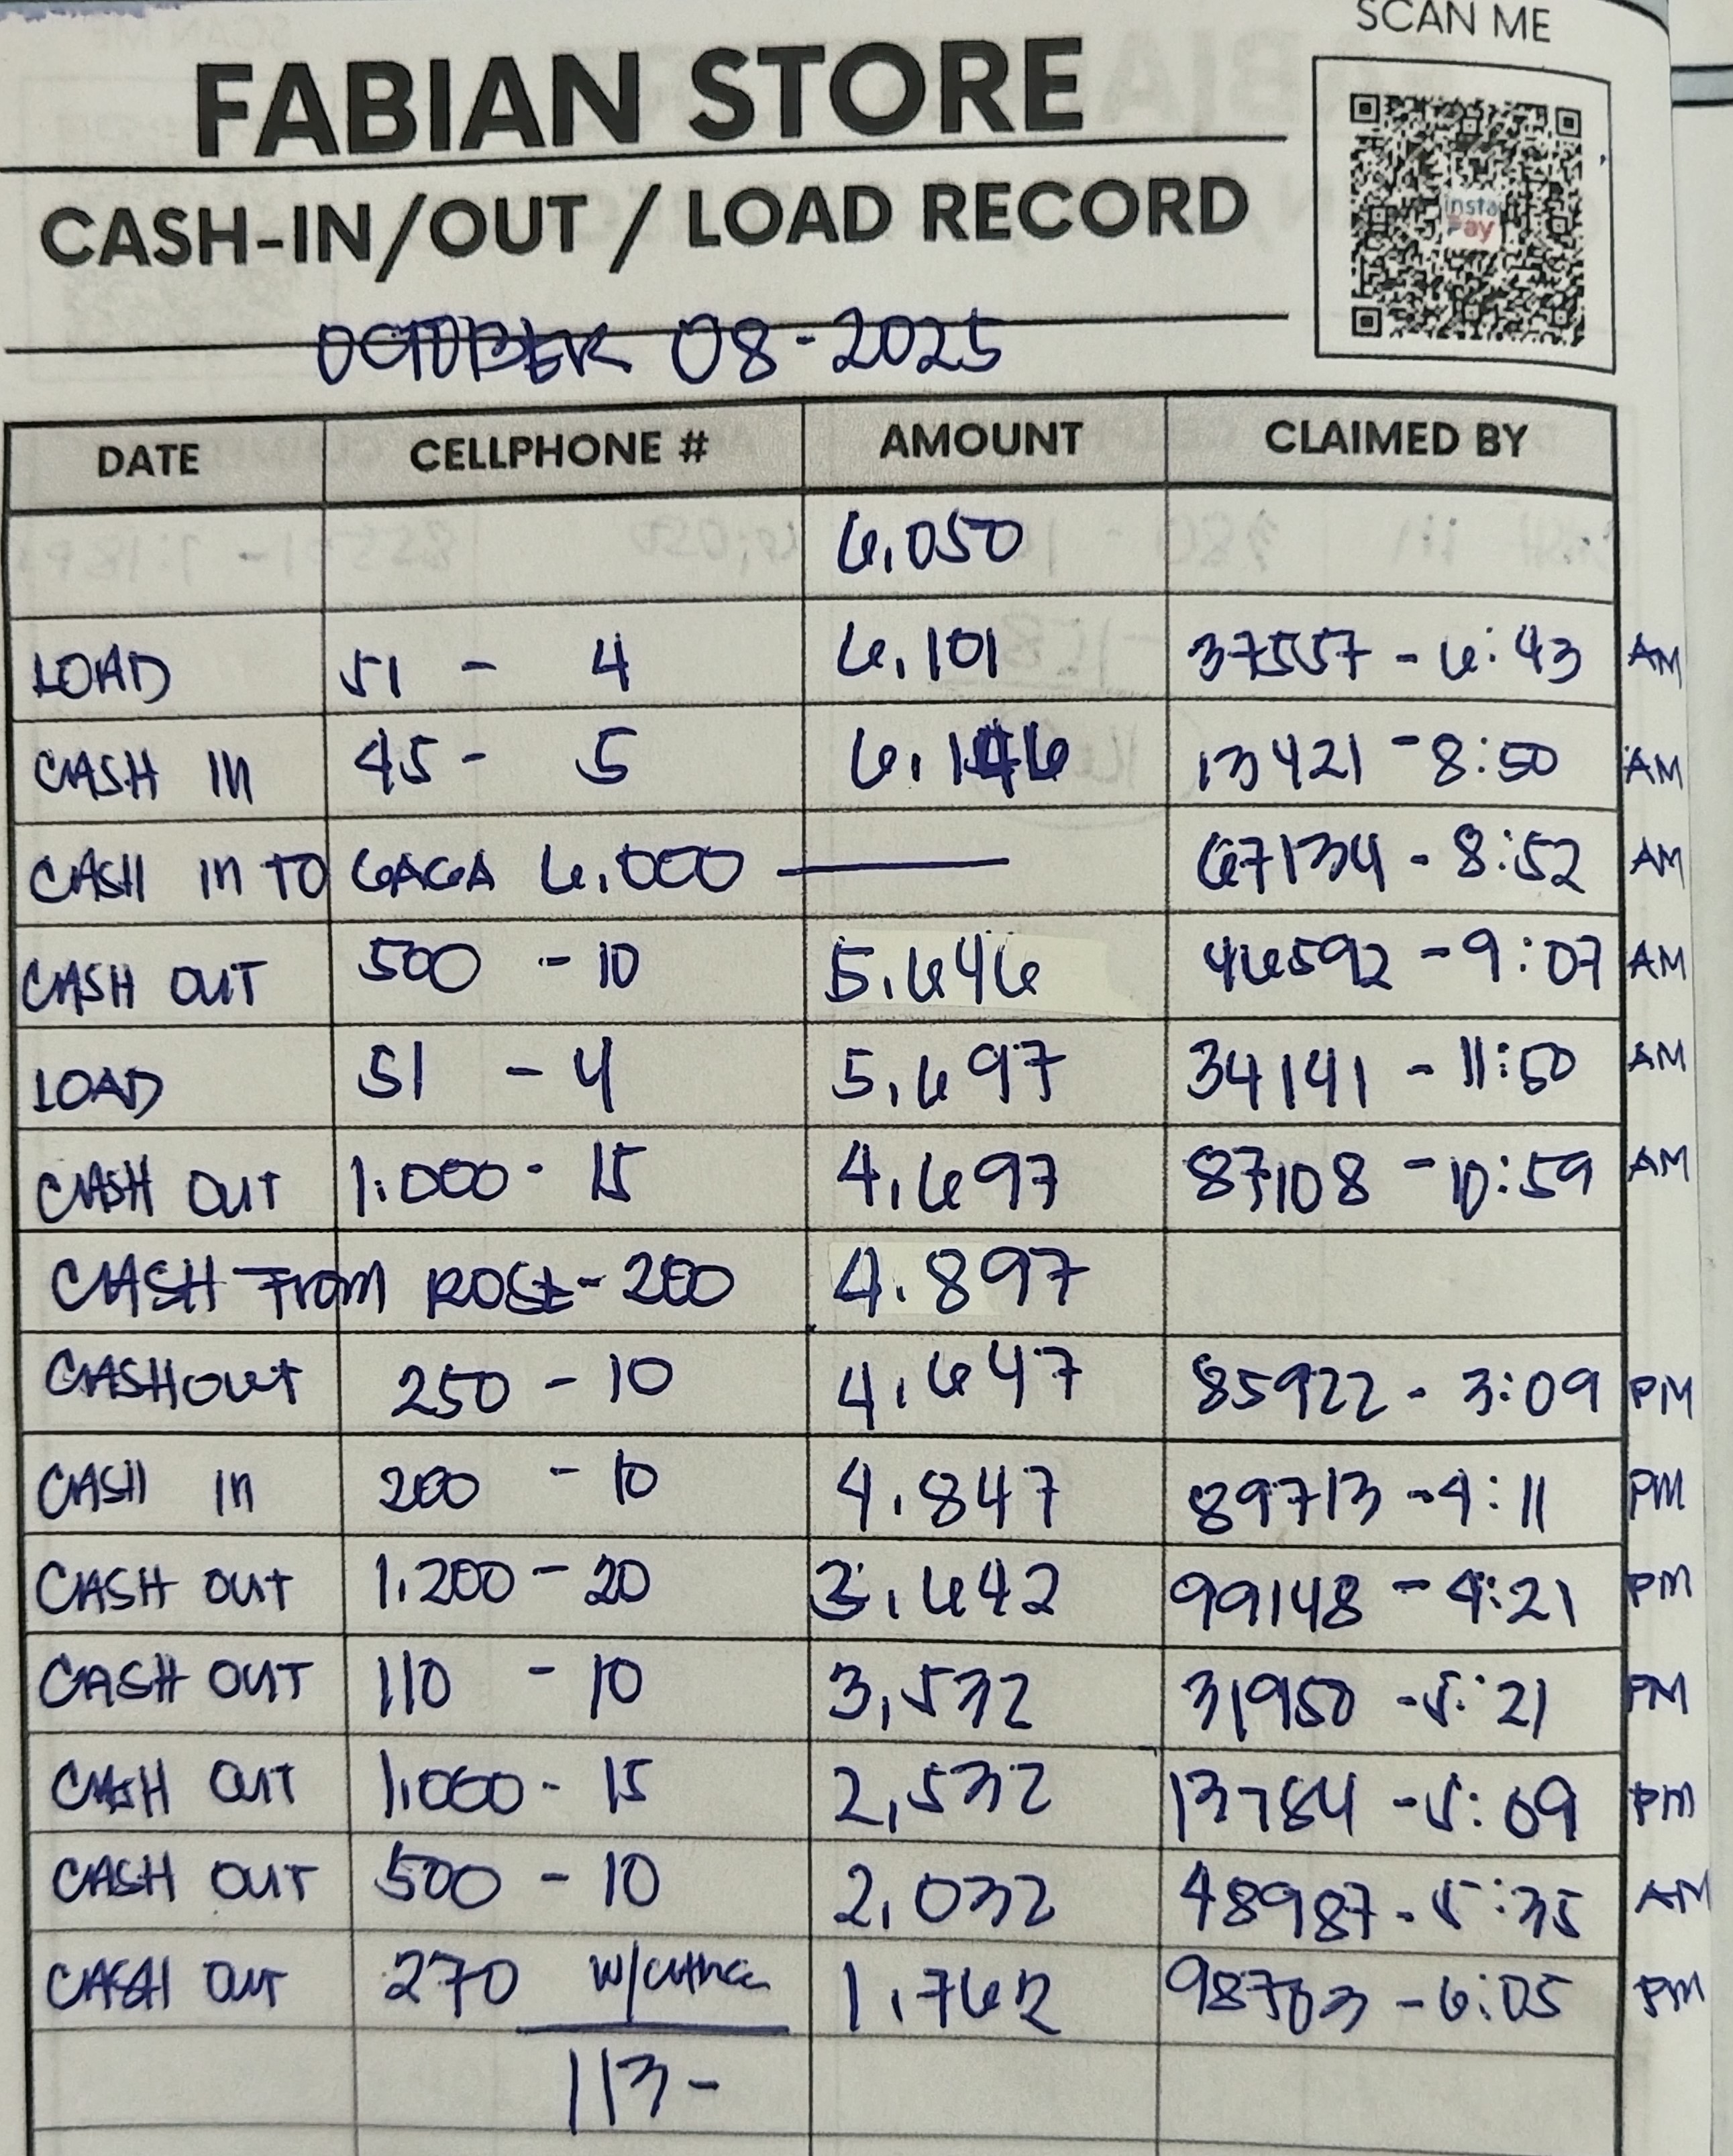 SCAN ME
FABIAN STORE
CASH-IN/OUT / LOAD RECORD
insta Pay
OCTOBER 08-2025
DATE CELLPHONE # AMOUNT CLAIMED BY
6,050
LOAD 51 - 4 6,101 37557 - 6:43 AM
CASH IN 45 - 5 6,146 13421 - 8:50 AM
CASH IN TO GAGA 6,000 — 67134 - 8:52 AM
CASH OUT 500 - 10 5,646 46592 - 9:07 AM
LOAD 51 - 4 5,697 34141 - 11:50 AM
CASH OUT 1,000 - 15 4,697 87108 - 10:59 AM
CASH FROM ROSE - 200 4.897
CASHOUT 250 - 10 4,647 85922 - 3:09 PM
CASH IN 200 - 10 4.847 89713 - 4:11 PM
CASH OUT 1,200 - 20 3,642 99148 - 4:21 PM
CASH OUT 110 - 10 3,532 31950 - 5:21 PM
CASH OUT 1,000 - 15 2,532 13784 - 5:09 PM
CASH OUT 500 - 10 2,032 48987 - 5:35 AM
CASH OUT 270 1,762 - 6:05 PM
113 -